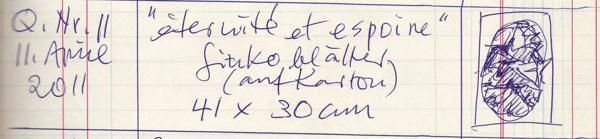 Q. Nr. 11
11. April
2011
"éternité et espoire"
Ginkoblätter
(auf Karton)
41 x 30 cm